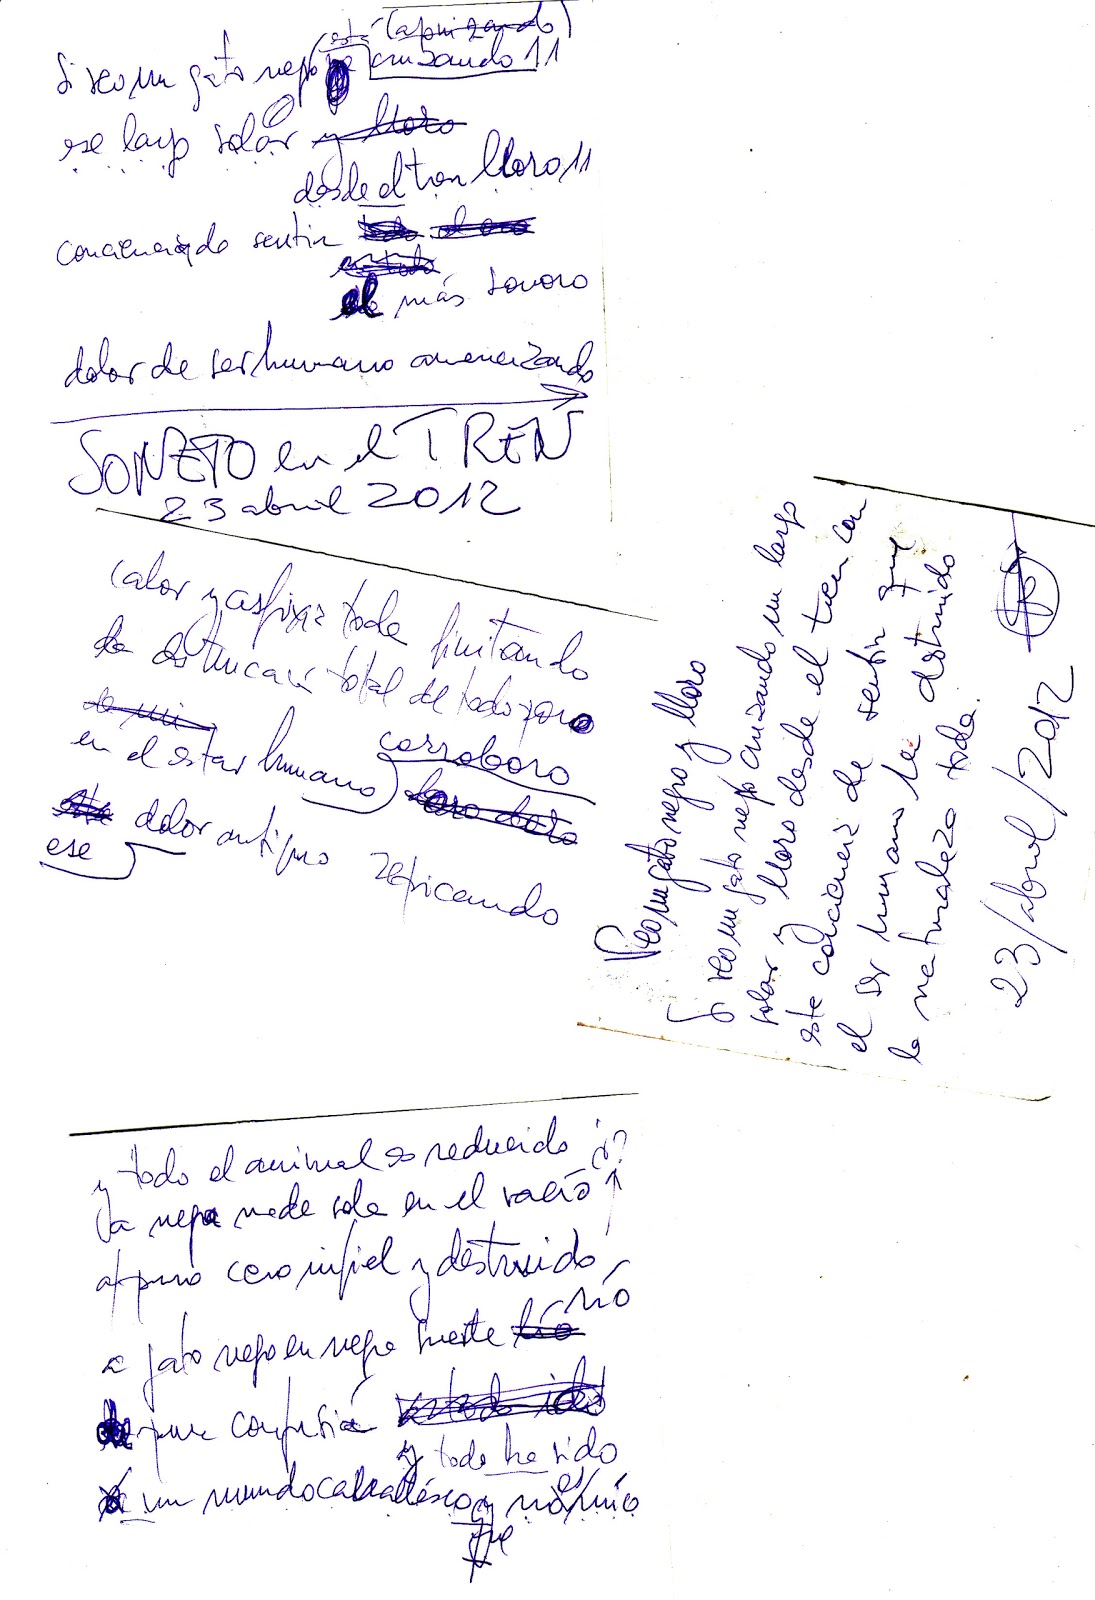 está (agonizando)
Si veo un gato negro cruzando 11
ese largo solar y lloro
desde el tren lloro 11
conciencia de sentir todo el oro
el más sonoro
dolor de ser humano amenizando
SONETO en el TREN
23 abril 2012
calor y asfixia toda finitando
destrucción total de todo poro
de mi
en el estar humano corroboro
ese dolor antiguo repicando
Veo un gato negro y lloro
Si veo un gato negro cruzando un largo
solar y lloro desde el tren con
este conciencia de sentir que
el ser humano ha destruido
la naturaleza toda.
23/abril/2012
y todo el animal es reducido
la negra nada sola en el vacío
al puro cero infiel y destruido
a gato negro en negra suerte río mío
pura confusión
y todo ha sido
un mundo y no es mío
que